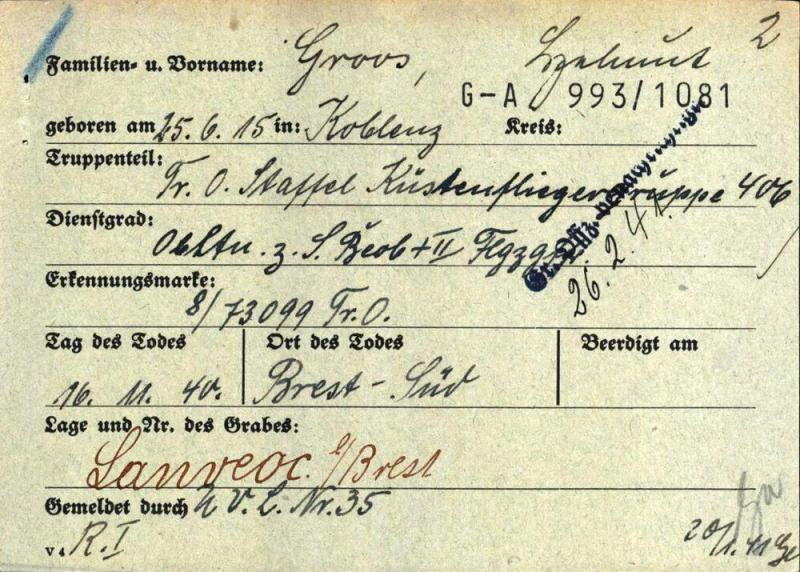 2
Familien- u. Vorname: Groos, Helmut
G-A 993/1081
geboren am 25.6.15 in: Koblenz Kreis:
Truppenteil:
Tr. O. Staffel Küstenfliegergruppe 406
Dienstgrad:
Obltn. z. S. Beob + II Flgzg
26.2.41.
Erkennungsmarke:
8/73099 Tr. O.
Tag des Todes Ort des Todes Beerdigt am
16. 11. 40. Brest - Süd
Lage und Nr. des Grabes:
Lanveoc b/Brest
Gemeldet durch V. L. Nr. 35
v. R. I
20/1. 41